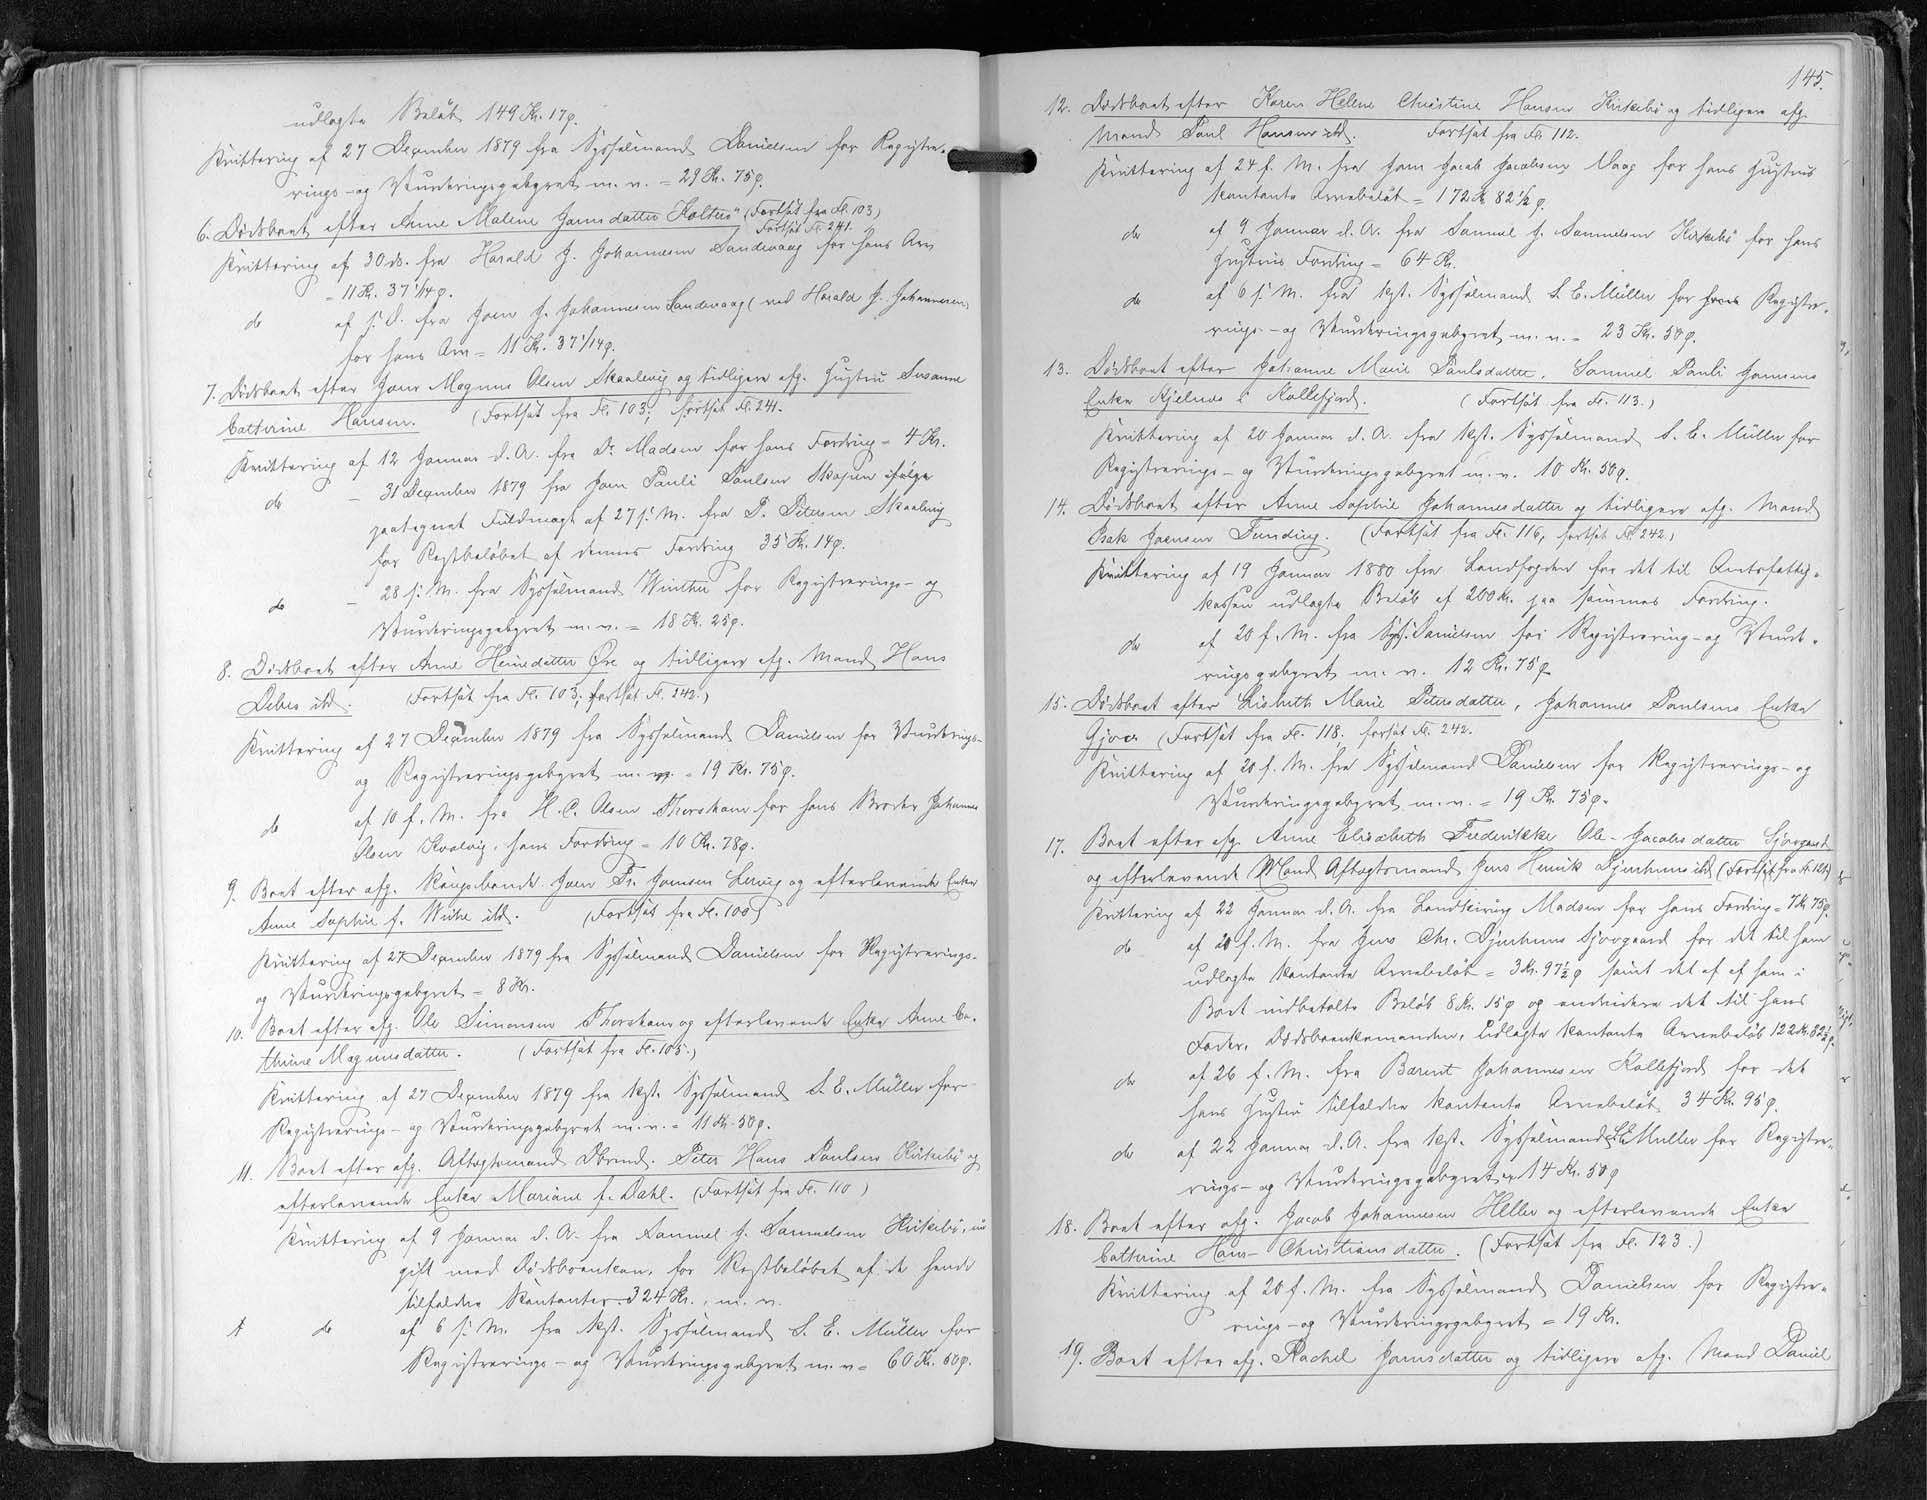 udlagte Beløb 149 Kr. 17ø.
Kvittering af 27 December 1879 fra Sysselmand Danielsen for Registre-
rings- og Vurderingsgebyret m. v. = 29 Kr. 75ø.
6. Dødsboet efter Anne Malene Joensdatter Kolters" (Fortsat fra Fl. 103)
Fortsat Fl. 241.
Kvittering af 30 ds. fra Harald J. Johannesen Sandevaag for hans Arv
= 11 Kr. 37 1/14ø.
do af s. D. fra Joen J. Johannesen Sandevaag (ved Harald J. Johannesen)
for hans Arv = 11 Kr. 37 1/14ø.
7. Dødsboet efter Joen Magnus Olsen Skaalevig og tidligere afg. Hustru Susanne
Cathrine Hansen. (Fortsat fra Fl. 103; fortsat Fl. 241.
Kvittering af 12 Januar d. A. fra Dr. Madsen for hans Fordring = 4 Kr.
do - 31 December 1879 fra Joen Pauli Poulsen Skopen ifølge
paategnet Fuldmagt af 27 s. M. fra P. Petersen Skaalevig
for Restbeløbet af dennes Fordring 35 Kr. 14ø.
do - 28 s. M. fra Sysselmand Winther for Registrerings- og
Vurderingsgebyret m. v. = 18 Kr. 25ø.
8. Dødsboet efter Anne Heinedatter Øre og tidligere afg. Mand Hans
Debes ibd. (Fortsat fra Fl. 103; fortsat Fl. 242.)
Kvittering af 27 December 1879 fra Sysselmand Danielsen for Vurderings-
og Registreringsgebyret m. v. = 19 Kr. 75ø.
do af 10 f. M. fra H. C. Olsen Thorshavn for hans Broder Johannes
Olsen Kvalvig, hans Fordring = 10 Kr. 78ø.
9. Boet efter afg. Kongsbonde Joen Fr. Joensen Lervig og efterlevende Enke
Anne Sophie f. Weihe ibd. (Fortsat fra Fl. 100)
Kvittering af 27 December 1879 fra Sysselmand Danielsen for Registrerings-
og Vurderingsgebyret = 8 Kr.
10. Boet efter afg. Ole Simonsen Thorshavn og efterlevende Enke Anne Ca-
thrine Magnusdatter. (Fortsat fra Fl. 105.)
Kvittering af 27 December 1879 fra kst. Sysselmand S. E. Müller for
Registrerings- og Vurderingsgebyret m. v. = 11 Kr. 50ø.
11. Boet efter afg. Aftægtsmand Dbrmd. Peter Hans Poulsen Kirkebø og
efterlevende Enke Mariane f. Dahl. (Fortsat fra Fl. 110)
Kvittering af 9 Januar d. A. fra Samuel J. Samuelsen Kirkebø, nu
gift med Dødsboenken, for Restbeløbet af de hende
tilfaldne Kontanter 324 Kr., m. v.
do af 6 s. M. fra kst. Sysselmand S. E. Müller for
Registrerings- og Vurderingsgebyret m. v. = 60 Kr. 50ø.
145.
12. Dødsboet efter Karen Helene Christine Hansen Kirkebø og tidligere afg.
Mand Poul Hansen ibd. Fortsat fra Fl. 112.
Kvittering af 24 f. M. fra Joen Jacob Jacobsen Vaag for hans Hustrus
kontante Arvebeløb = 172 Kr 82 1/2 ø.
do af 9 Januar d. A. fra Samuel J. Samuelsen Kirkebø for hans
Hustrus Fordring = 64 Kr.
do af 6 s. M. fra kst. Sysselmand S. E. Müller for hans Registre-
rings- og Vurderingsgebyret m. v. = 23 Kr. 50ø.
13. Dødsboet efter Johanne Marie Poulsdatter, Samuel Pauli Joensens
Enke Kjelnæs i Kollefjord. (Fortsat fra Fl. 113.)
Kvittering af 20 Januar d. A. fra kst. Sysselmand S. E. Müller for
Registrerings- og Vurderingsgebyret m. v. 10 Kr. 50ø.
14. Dødsboet efter Anne Sophie Johannesdatter og tidligere afg. Mand
Isak Joensen Funding. (Fortsat fra Fl. 116, fortsat Fl. 242.)
Kvittering af 19 Januar 1880 fra Landfogden for det til Amtsfattig-
kassen udlagte Beløb af 200 Kr. paa sammes Fordring.
do af 20 f. M. fra Syss. Danielsen for Registrering- og Vurde-
ringsgebyret m. v. 12 Kr. 75ø
15. Dødsboet efter Lisbeth Marie Petersdatter, Johannes Poulsens Enke
Gjov (Fortsat fra Fl. 118; forsat Fl. 242.
Kvittering af 20 f. M. fra Sysselmand Danielsen for Registrerings- og
Vurderingsgebyret m. v. = 19 Kr. 75ø.
17. Boet efter afg. Anne Elisabeth Frederikke Ole-Jacobsdatter Sjovgaard
og efterlevende Mand Aftægtsmand Jens Henrik Djurhuus ibd (Fortsat fra Fl. 121)
Kvittering af 22 Januar d. A. fra Landkirurg Madsen for hans Fordring = 7 Kr. 75ø.
do af 20 f. M. fra Jens Chr. Djurhuus Sjovgaard for det til ham
udlagte kontante Arvebeløb = 3 Kr. 97 1/2 ø samt det af af ham i
Boet indbetalte Beløb 8 Kr. 15ø og endvidere det til hans
Fader, Dødsboenkemanden, udlagte kontante Arvebeløb 122 Kr. 82 1/2 ø.
do af 26 f. M. fra Barent Johannesen Kollefjord for det
hans Hustru tilfaldne kontante Arvebeløb 34 Kr. 95ø.
do af 22 Januar d. A. fra kst. Sysselmand S. E. Müller for Registre-
rings- og Vurderingsgebyret = 14 Kr. 50ø
18. Boet efter afg. Jacob Johannesen Heller og efterlevende Enke
Cathrine Hans-Christiansdatter. (Fortsat fra Fl. 123.)
Kvittering af 20 f. M. fra Sysselmand Danielsen for Registre-
rings- og Vurderingsgebyret = 19 Kr.
19. Boet efter afg. Rachel Joensdatter og tidligere afg. Mand Daniel